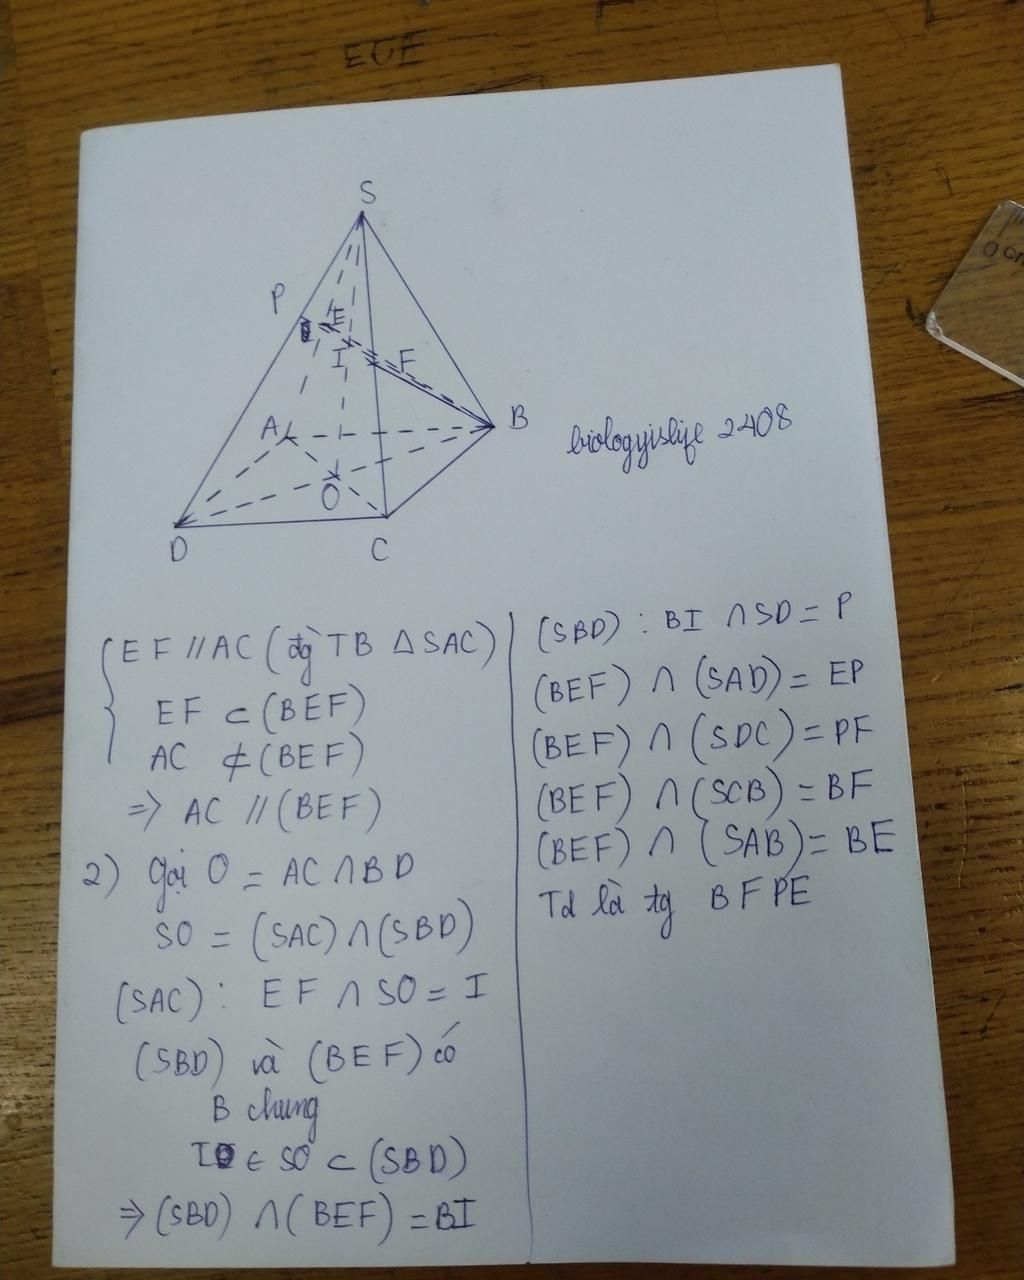 EUE
S
P
E
I
F
A
B
O
D
C
biologyislife 2408
EF // AC (đg TB Δ SAC)
EF ⊂ (BEF)
AC ⊄ (BEF)
=> AC // (BEF)
2) Gọi O = AC ∩ BD
SO = (SAC) ∩ (SBD)
(SAC) : EF ∩ SO = I
(SBD) và (BEF) có
B chung
I ∈ SO ⊂ (SBD)
=> (SBD) ∩ (BEF) = BI
(SBD) : BI ∩ SD = P
(BEF) ∩ (SAD) = EP
(BEF) ∩ (SDC) = PF
(BEF) ∩ (SCB) = BF
(BEF) ∩ (SAB) = BE
Td là tg BFPE